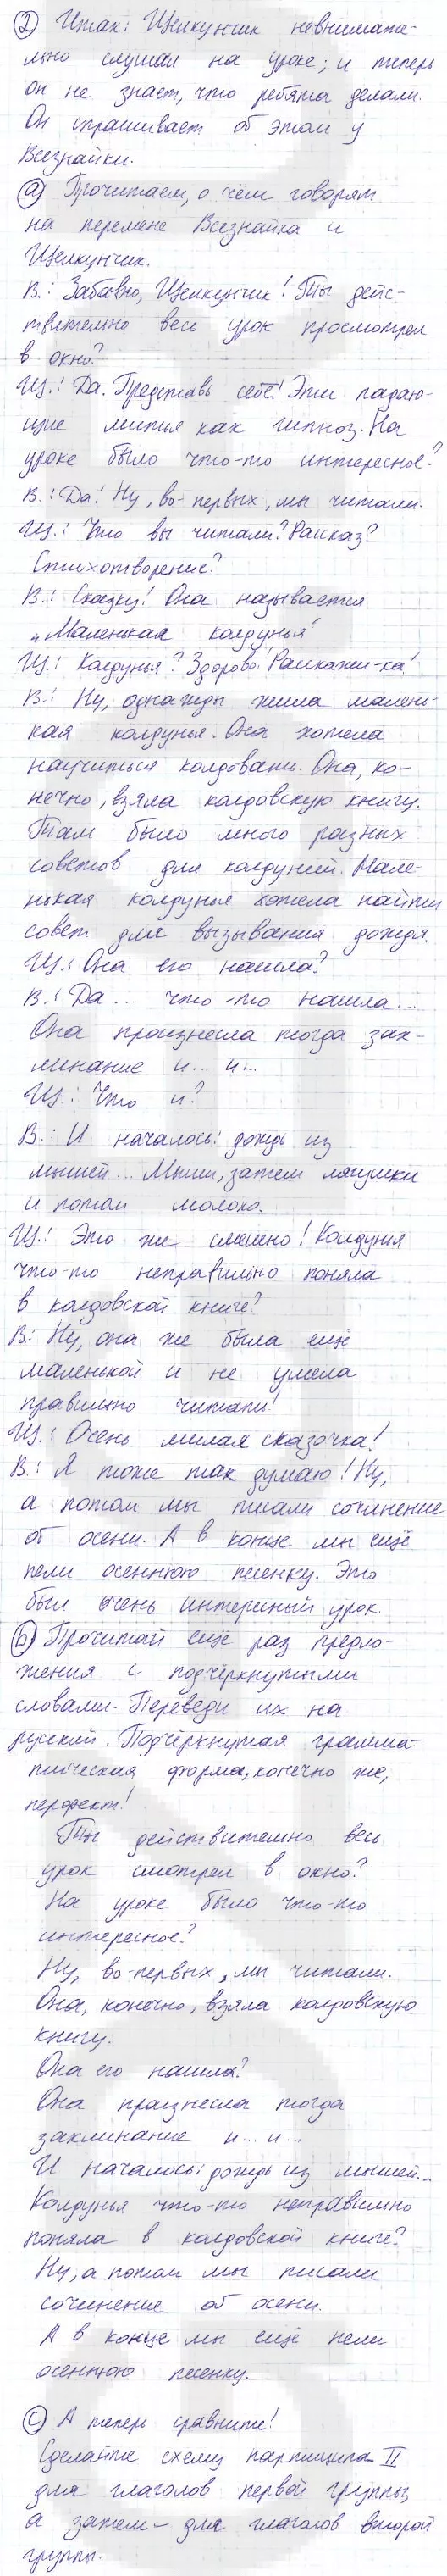 ② Итак: Щелкунчик невнимате-
льно слушал на уроке; и теперь
он не знает, что ребята делали.
Он спрашивает об этом у
Всезнайки.
ⓐ Прочитаем, о чём говорят
на перемене Всезнайка и
Щелкунчик.
В.: Забавно, Щелкунчик! Ты дейс-
твительно весь урок просмотрел
в окно?
Щ.: Да. Представь себе! Эти падаю-
щие листья как гипноз. На
уроке было что-то интересное?
В.: Да! Ну, во-первых, мы читали.
Щ.: Что вы читали? Рассказ?
Стихотворение?
В.: Сказку! Она называется
„Маленькая колдунья"
Щ.: Колдунья? Здорово! Расскажи-ка!
В.: Ну, однажды жила малень-
кая колдунья. Она хотела
научиться колдовать. Она, ко-
нечно, взяла колдовскую книгу.
Там было много разных
советов для колдуний. Мале-
нькая колдунья хотела найти
совет для вызывания дождя.
Щ.: Она его нашла?
В.: Да... что-то нашла...
Она произнесла тогда зак-
линание и... и...
Щ.: Что и?
В.: И началось: дождь из
мышей... Мыши, затем лягушки
и потом молоко.
Щ.: Это же смешно! Колдунья
что-то неправильно поняла
в колдовской книге?
В: Ну, она же была ещё
маленькой и не умела
правильно читать!
Щ.: Очень милая сказочка!
В.: Я тоже так думаю! Ну,
а потом мы писали сочинение
об осени. А в конце мы ещё
пели осеннюю песенку. Это
был очень интересный урок
ⓑ Прочитай ещё раз предло-
жения с подчёркнутыми
словами. Переведи их на
русский. Подчёркнутая грамма-
тическая форма, конечно же,
перфект!
Ты действительно весь
урок смотрел в окно?
На уроке было что-то
интересное?
Ну, во-первых, мы читали.
Она, конечно, взяла колдовскую
книгу.
Она его нашла?
Она произнесла тогда
заклинание и... и...
И началось: дождь из мышей...
Колдунья что-то неправильно
поняла в колдовской книге?
Ну, а потом мы писали
сочинение об осени.
А в конце мы ещё пели
осеннюю песенку.
ⓒ А теперь сравните!
Сделайте схему партиципа II
для глаголов первой группы,
а затем – для глаголов второй
группы.